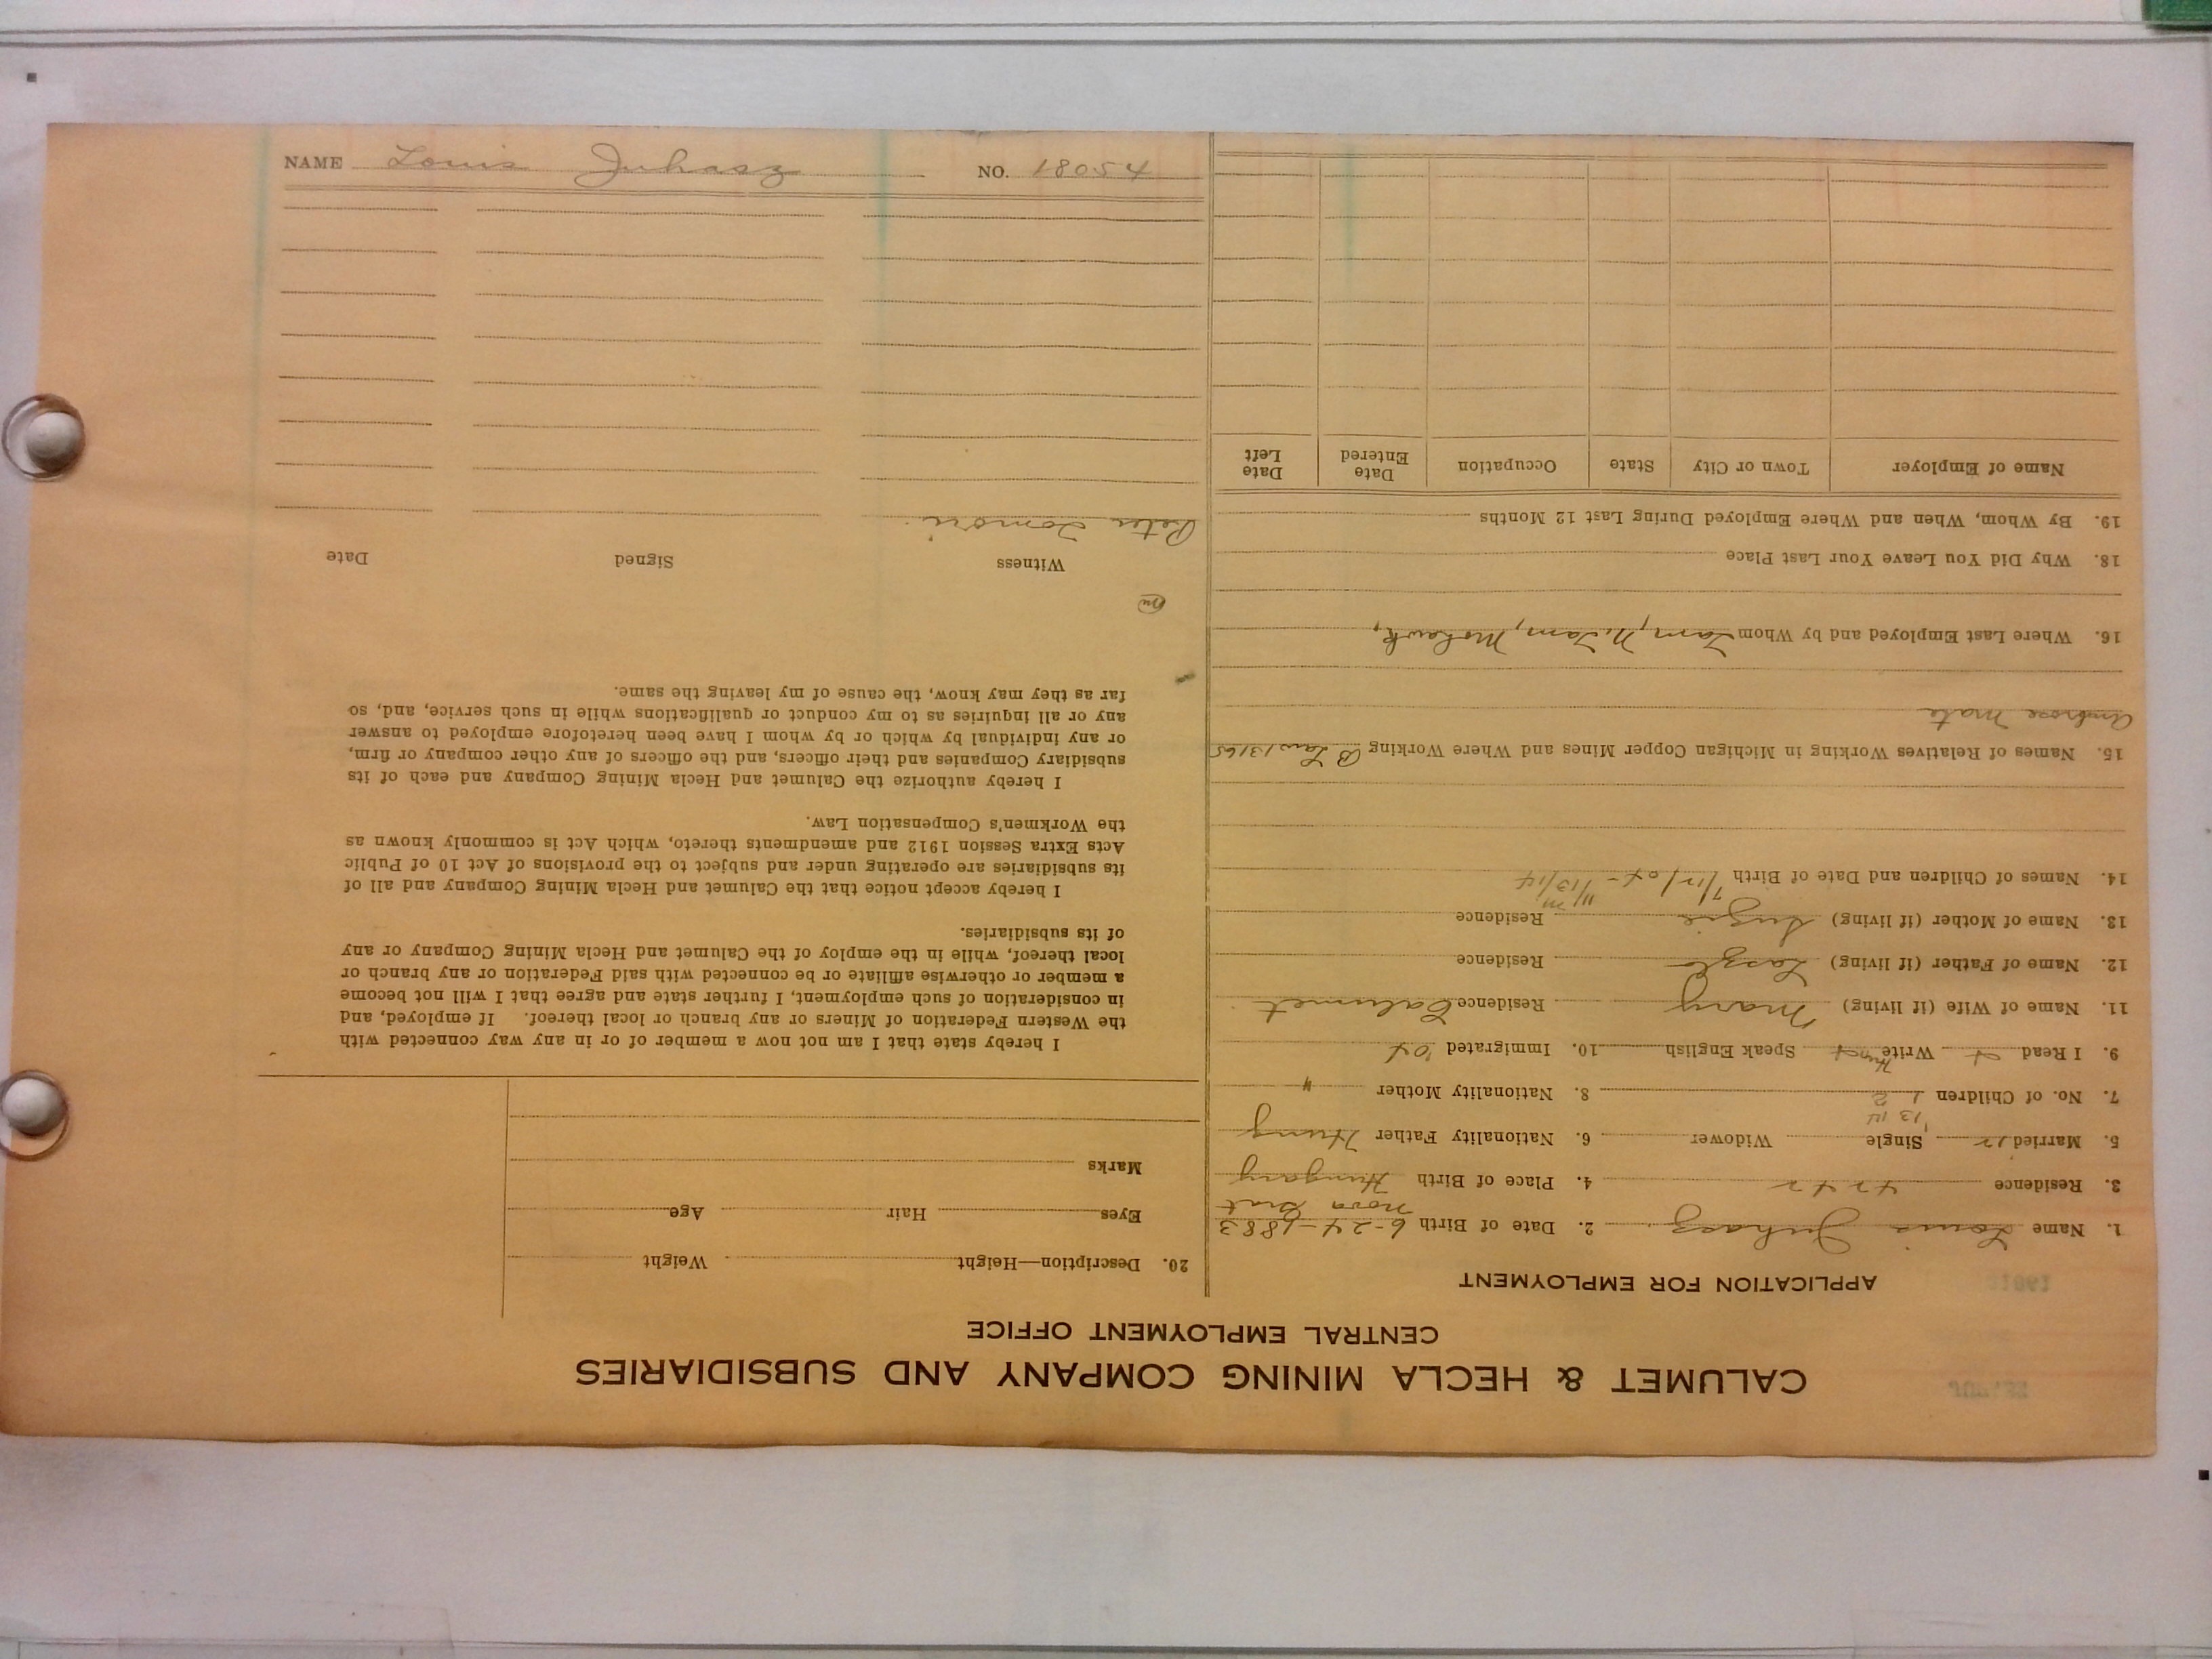 CALUMET & HECLA MINING COMPANY AND SUBSIDIARIES
CENTRAL EMPLOYMENT OFFICE
APPLICATION FOR EMPLOYMENT
1. Name Louis Juhasz 2. Date of Birth 6-24-1883
3. Residence 4. Place of Birth Hungary
5. Married Single Widower 6. Nationality Father Hung
13 14
7. No. of Children 1 2 8. Nationality Mother "
9. I Read Write Speak English 10. Immigrated
11. Name of Wife (if living) Mary Residence Calumet
12. Name of Father (if living) Laszlo Residence
13. Name of Mother (if living) Residence
14. Names of Children and Date of Birth
15. Names of Relatives Working in Michigan Copper Mines and Where Working
Ambrose Mate
16. Where Last Employed and by Whom Tam, N. Tam, Mohawk,
18. Why Did You Leave Your Last Place
19. By Whom, When and Where Employed During Last 12 Months
Name of Employer Town or City State Occupation Date Entered Date Left
20. Description—Height Weight
Eyes Hair Age
Marks
I hereby state that I am not now a member of or in any way connected with
the Western Federation of Miners or any branch or local thereof. If employed, and
in consideration of such employment, I further state and agree that I will not become
a member or otherwise affiliate or be connected with said Federation or any branch or
local thereof, while in the employ of the Calumet and Hecla Mining Company or any
of its subsidiaries.
I hereby accept notice that the Calumet and Hecla Mining Company and all of
its subsidiaries are operating under and subject to the provisions of Act 10 of Public
Acts Extra Session 1912 and amendments thereto, which Act is commonly known as
the Workmen's Compensation Law.
I hereby authorize the Calumet and Hecla Mining Company and each of its
subsidiary Companies and their officers, and the officers of any other company or firm,
or any individual by which or by whom I have been heretofore employed to answer
any or all inquiries as to my conduct or qualifications while in such service, and, so
far as they may know, the cause of my leaving the same.
Witness Signed Date
Peter Tomori
NAME Louis Juhasz NO. 18054